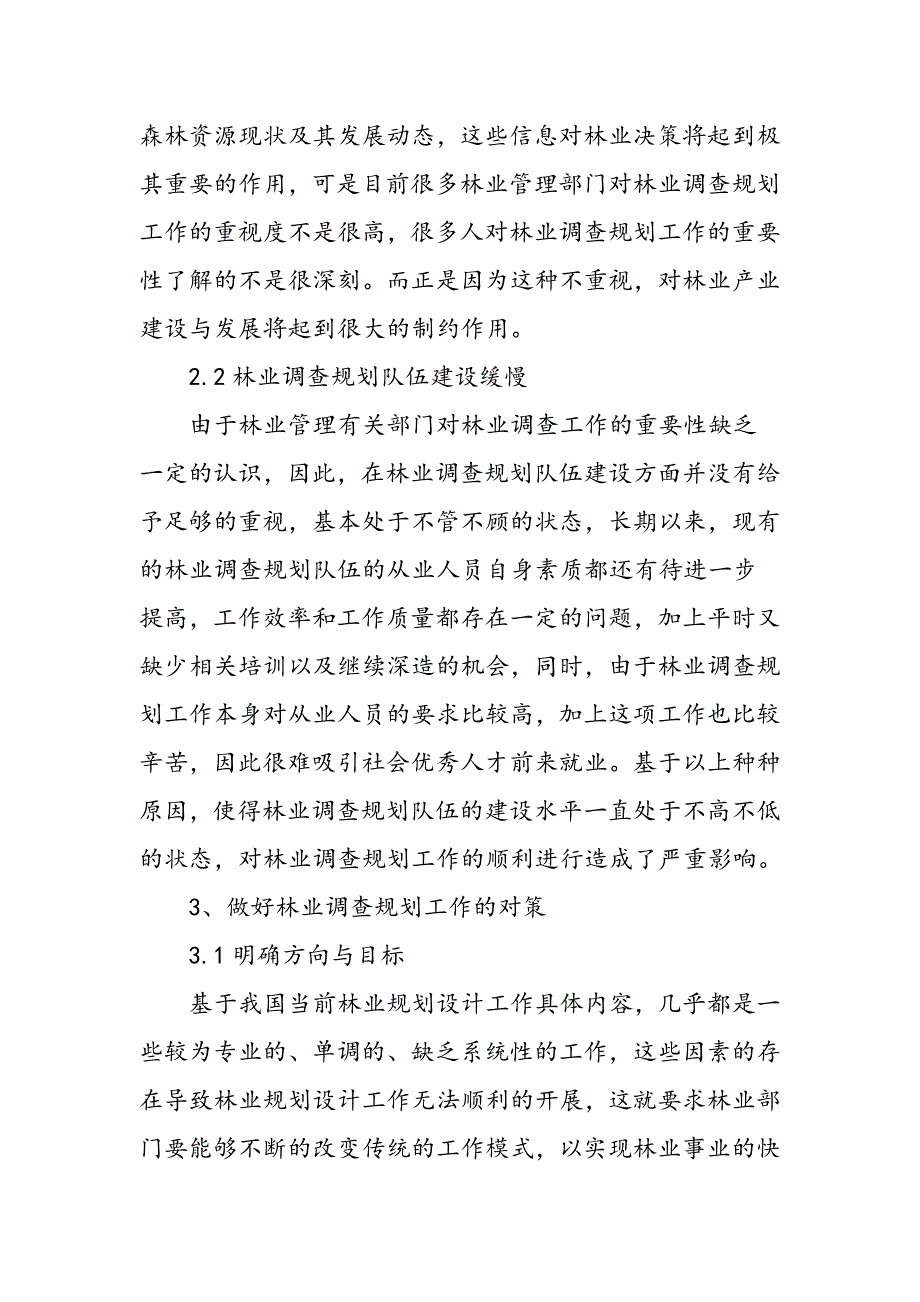 森林资源现状及其发展动态，这些信息对林业决策将起到极
其重要的作用，可是目前很多林业管理部门对林业调查规划
工作的重视度不是很高，很多人对林业调查规划工作的重要
性了解的不是很深刻。而正是因为这种不重视，对林业产业
建设与发展将起到很大的制约作用。
2.2 林业调查规划队伍建设缓慢
由于林业管理有关部门对林业调查工作的重要性缺乏
一定的认识，因此，在林业调查规划队伍建设方面并没有给
予足够的重视，基本处于不管不顾的状态，长期以来，现有
的林业调查规划队伍的从业人员自身素质都还有待进一步
提高，工作效率和工作质量都存在一定的问题，加上平时又
缺少相关培训以及继续深造的机会，同时，由于林业调查规
划工作本身对从业人员的要求比较高，加上这项工作也比较
辛苦，因此很难吸引社会优秀人才前来就业。基于以上种种
原因，使得林业调查规划队伍的建设水平一直处于不高不低
的状态，对林业调查规划工作的顺利进行造成了严重影响。
3、做好林业调查规划工作的对策
3.1 明确方向与目标
基于我国当前林业规划设计工作具体内容，几乎都是一
些较为专业的、单调的、缺乏系统性的工作，这些因素的存
在导致林业规划设计工作无法顺利的开展，这就要求林业部
门要能够不断的改变传统的工作模式，以实现林业事业的快